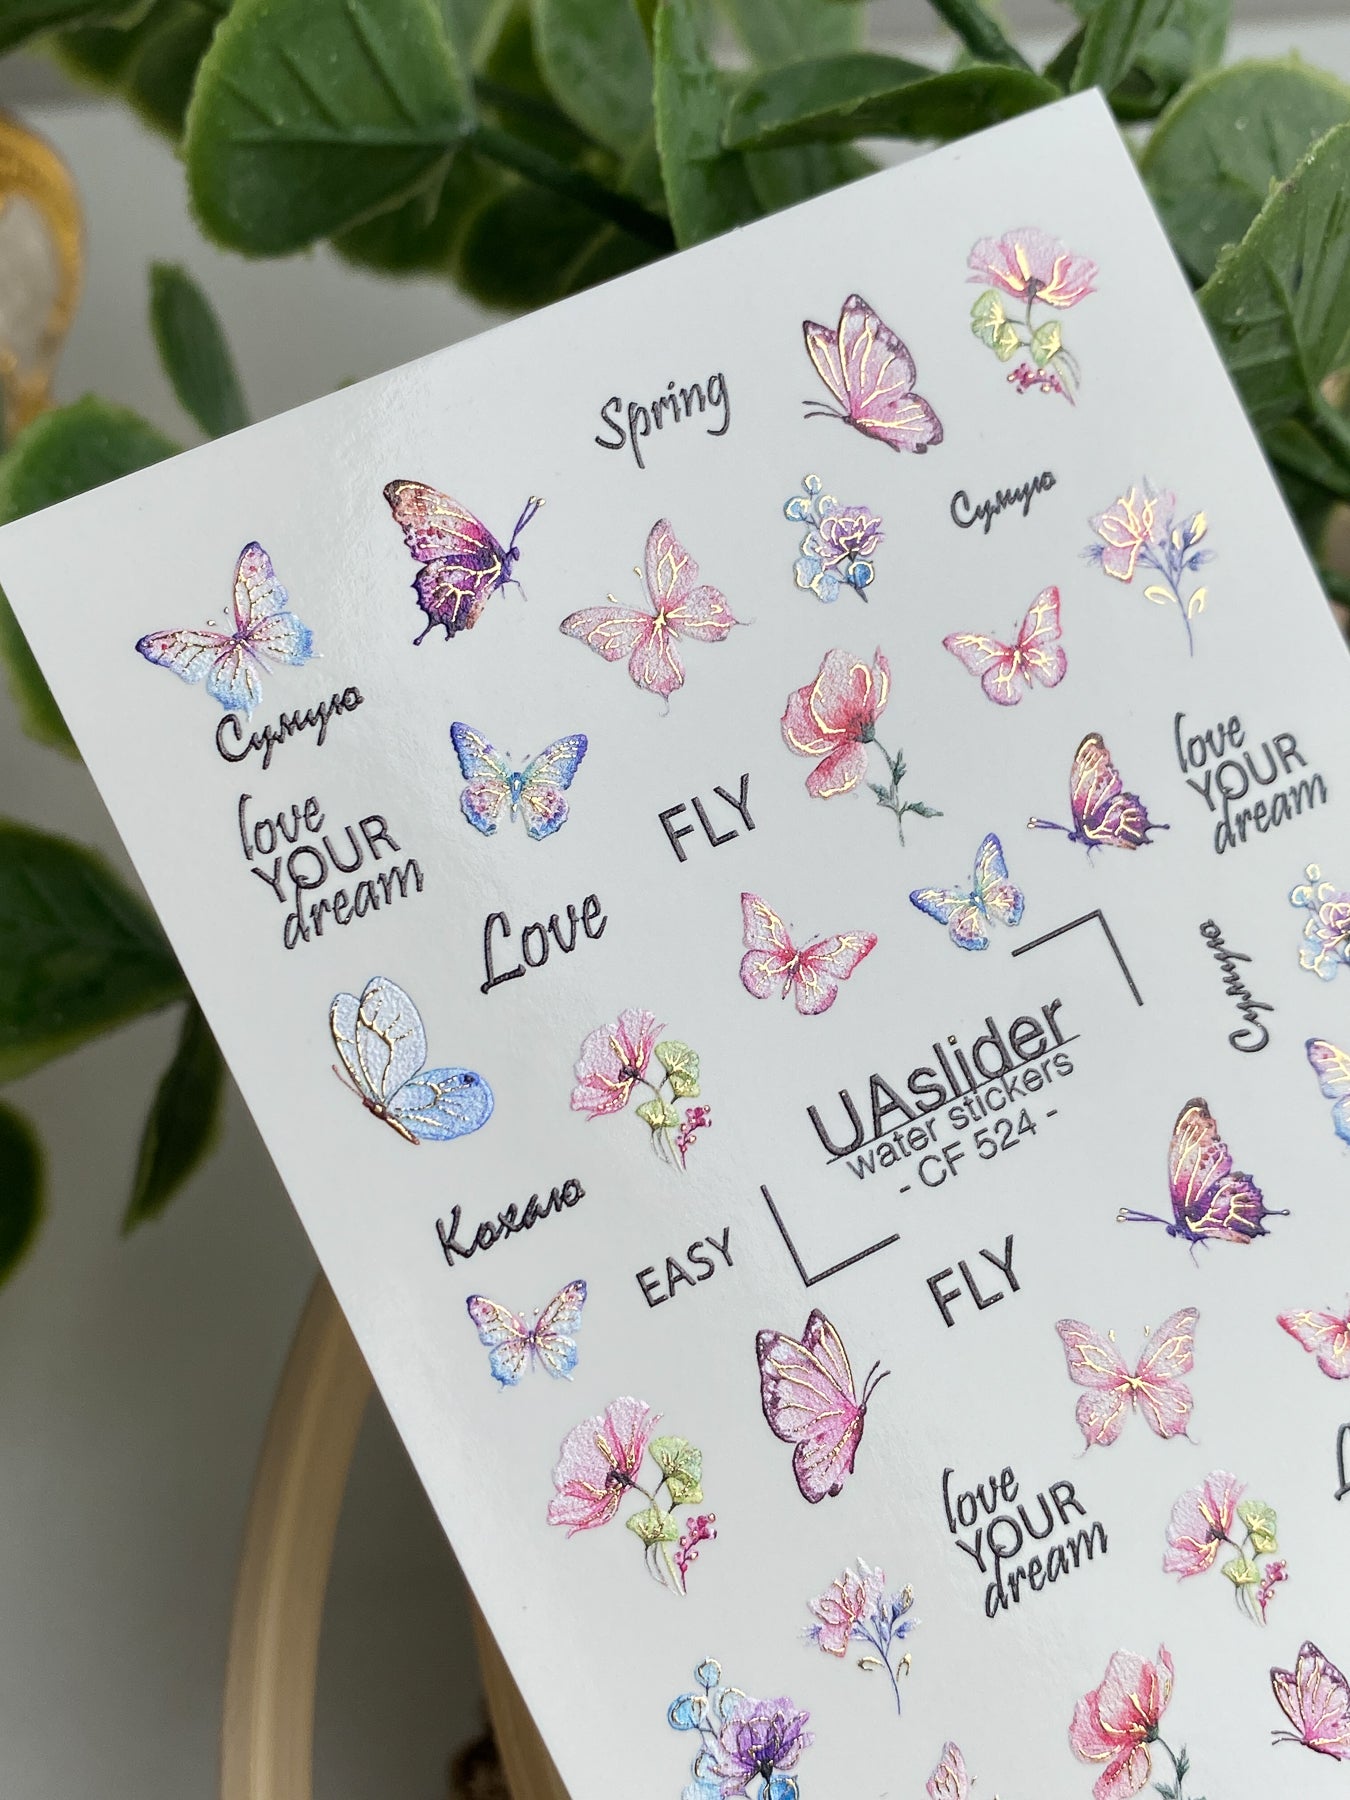 Spring
Сумую
Сумую
love
YOUR
dream
FLY
love
YOUR
dream
Love
Сумую
UAslider
water stickers
- CF 524 -
Кохаю
EASY
FLY
love
YOUR
dream